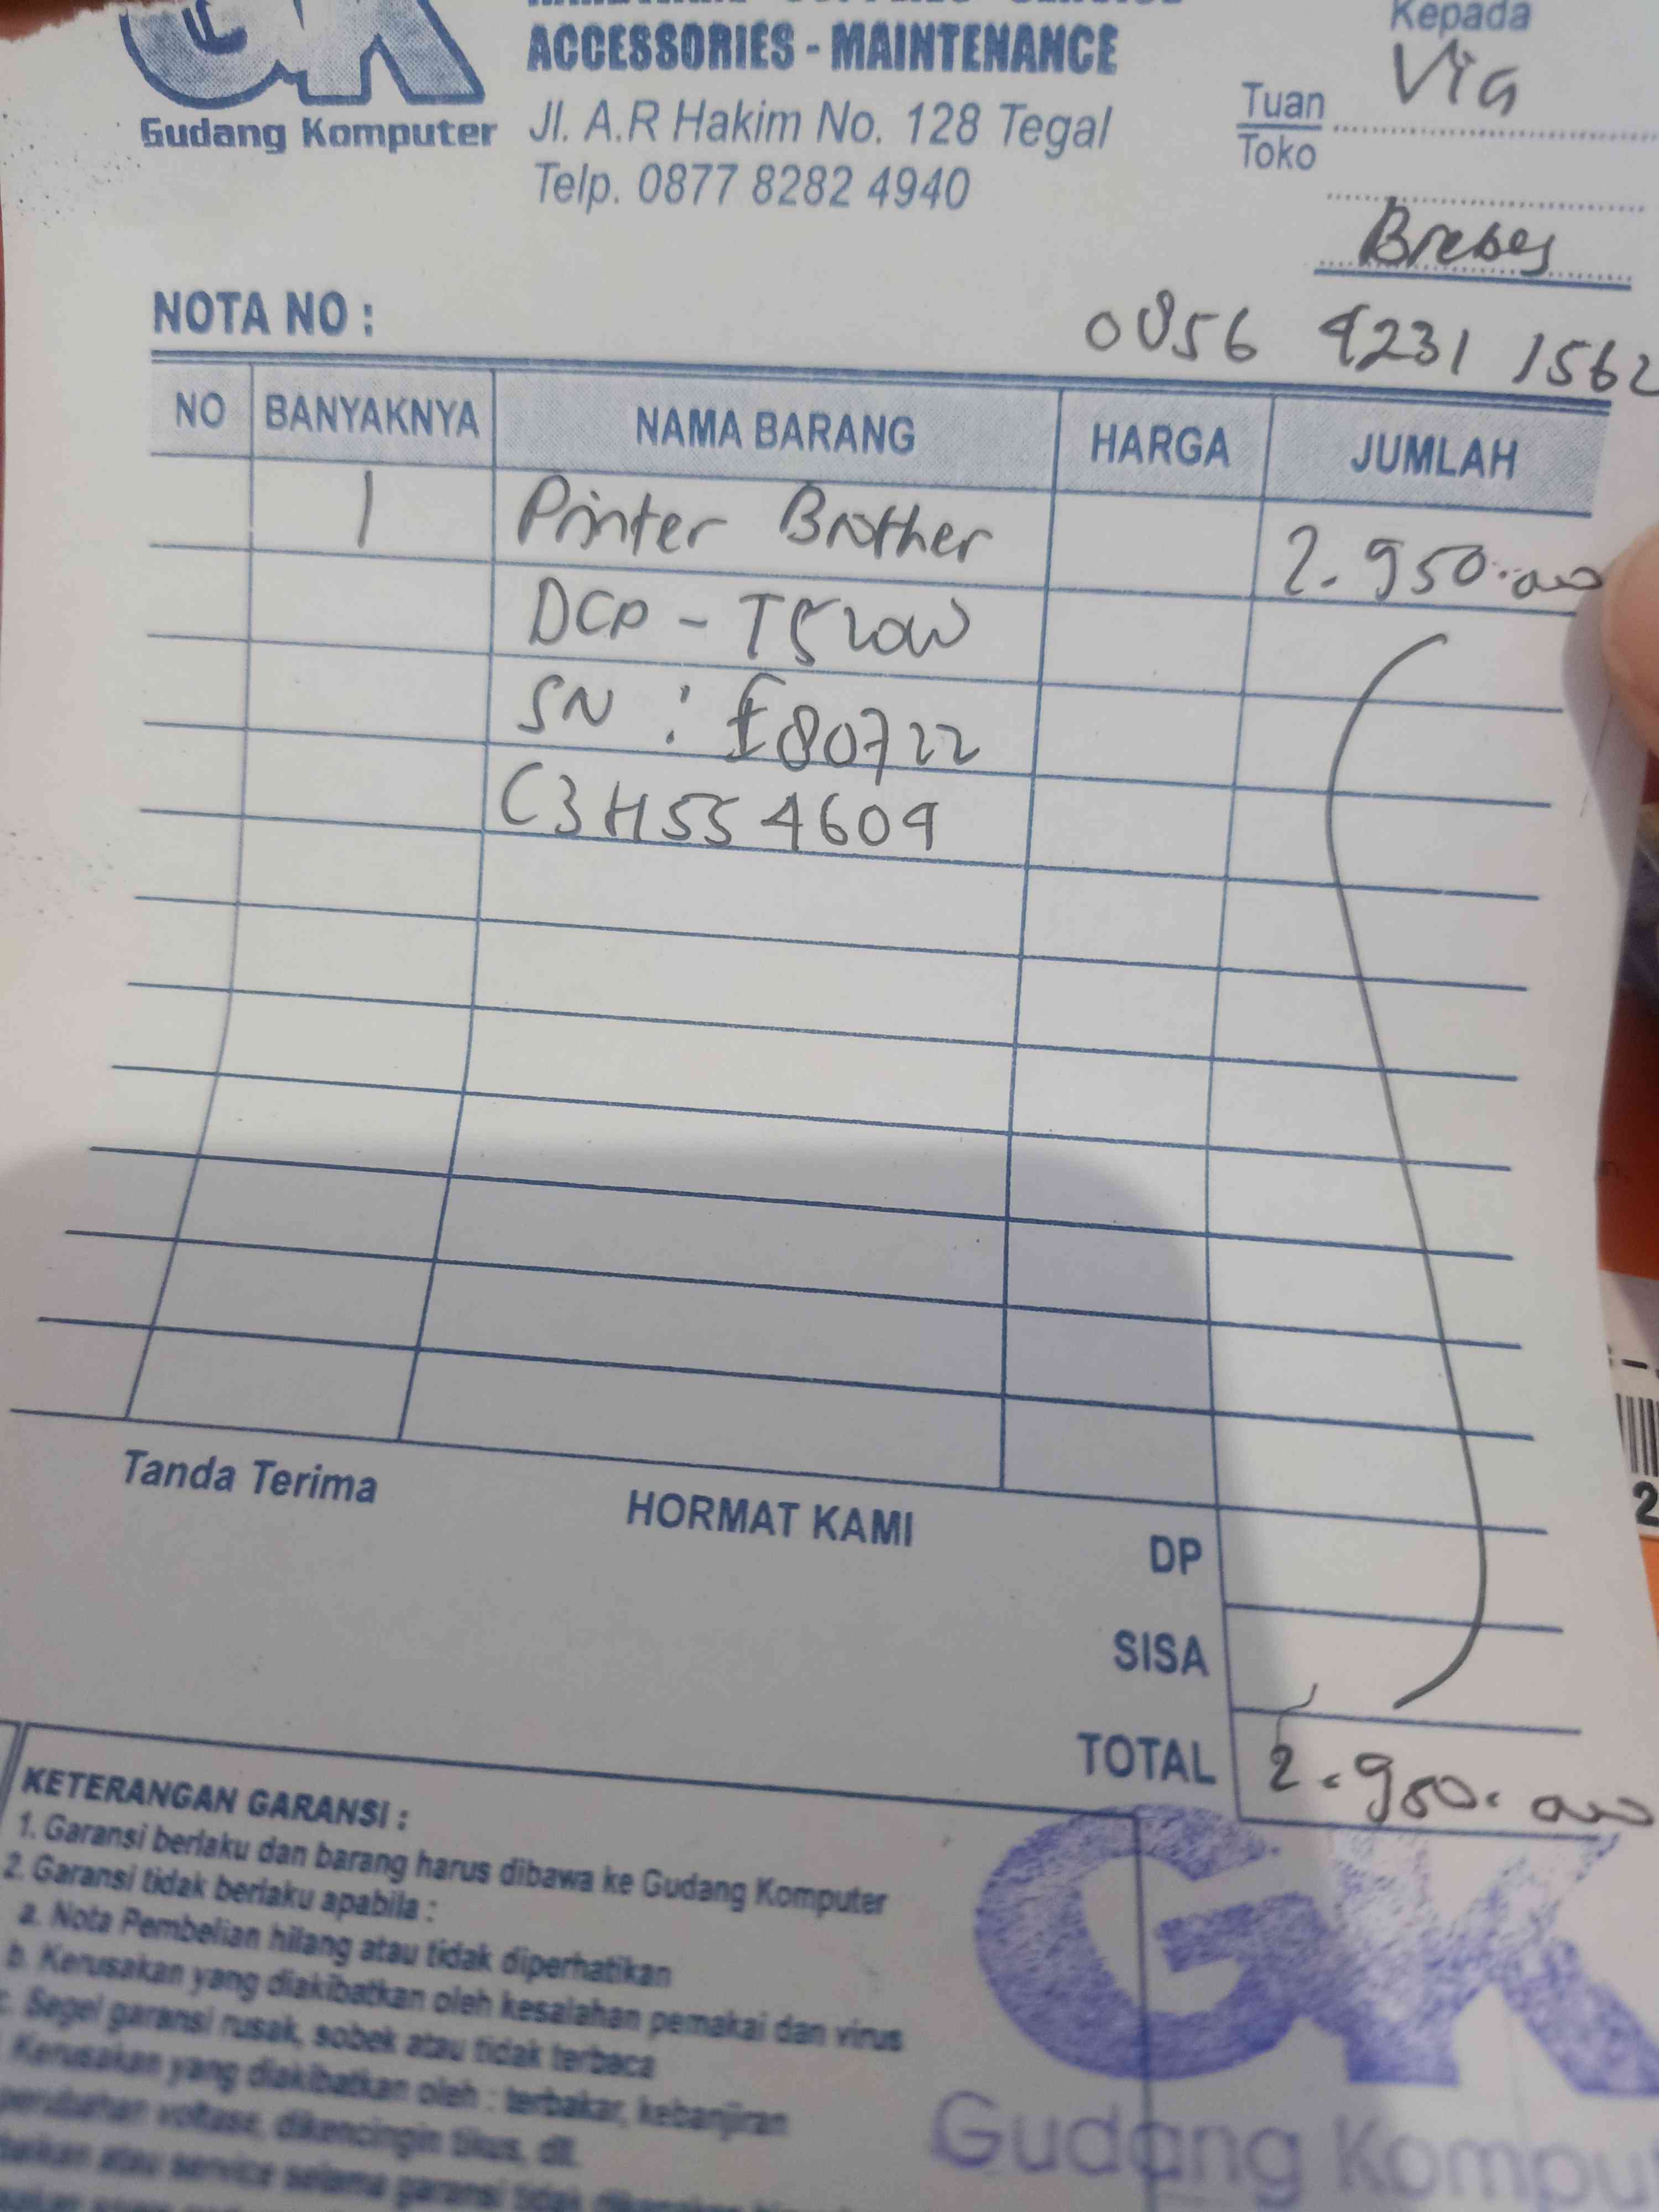 ACCESSORIES - MAINTENANCE
Gudang Komputer
Jl. A.R Hakim No. 128 Tegal
Telp. 0877 8282 4940
Kepada
Tuan
Toko
Via
Brebes
NOTA NO :
0856 4231 1562
NO BANYAKNYA NAMA BARANG HARGA JUMLAH
1 Printer Brother 2.950.000
DCP - T520W
SN : E80722
C3H554609
Tanda Terima
HORMAT KAMI
DP
SISA
TOTAL 2.950.000
KETERANGAN GARANSI :
1. Garansi berlaku dan barang harus dibawa ke Gudang Komputer
2. Garansi tidak berlaku apabila :
a. Nota Pembelian hilang atau tidak diperhatikan
b. Kerusakan yang diakibatkan oleh kesalahan pemakai dan virus
c. Segel garansi rusak, sobek atau tidak terbaca
Kerusakan yang diakibatkan oleh : terbakar, kebanjiran
perubahan voltase, dikencingin tikus, dll.
atau service selama garansi tidak
GK
Gudang